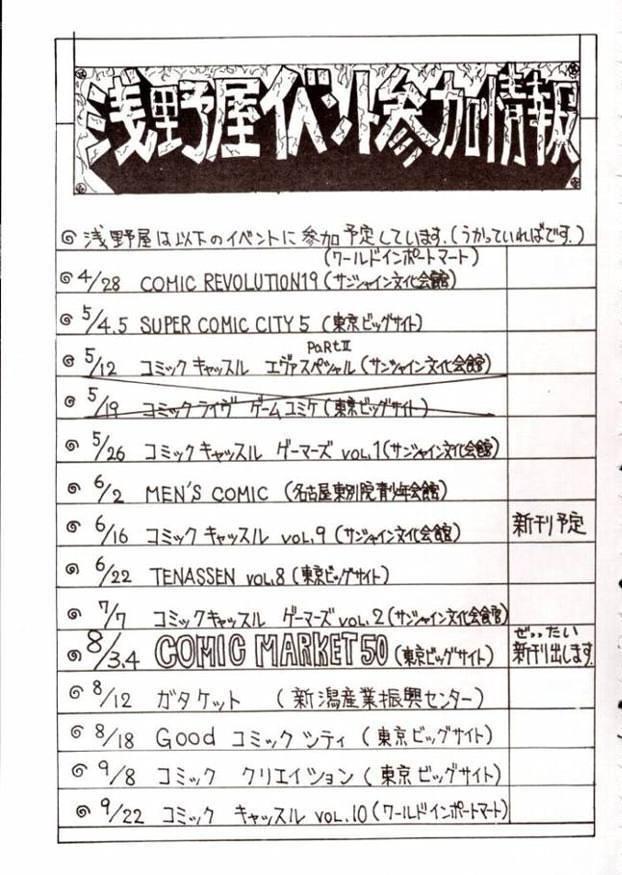 浅野屋イベント参加情報
浅野屋は以下のイベントに参加予定しています.(うかっていればです.)
(ワールドインポートマート)
4/28 COMIC REVOLUTION19(サンシャイン文化会館)
5/4.5 SUPER COMIC CITY 5 (東京ビッグサイト)
PARTⅡ
5/12 コミックキャッスル エヴァスペシャル(サンシャイン文化会館)
5/19 コミックライヴ ゲームコミケ(東京ビッグサイト)
5/26 コミックキャッスル ゲーマーズ VOL.1(サンシャイン文化会館)
6/2 MEN'S COMIC (名古屋東別院青少年会館)
6/16 コミックキャッスル VOL.9(サンシャイン文化会館) 新刊予定
6/22 TENASSEN VOL.8(東京ビッグサイト)
7/7 コミックキャッスル ゲーマーズ VOL.2(サンシャイン文化会館)
8/3.4 COMIC MARKET50(東京ビッグサイト) ぜったい
新刊出します.
8/12 ガタケット (新潟産業振興センター)
8/18 Good コミックシティ(東京ビッグサイト)
9/8 コミック クリエイション(東京ビッグサイト)
9/22 コミック キャッスル VOL.10(ワールドインポートマート)